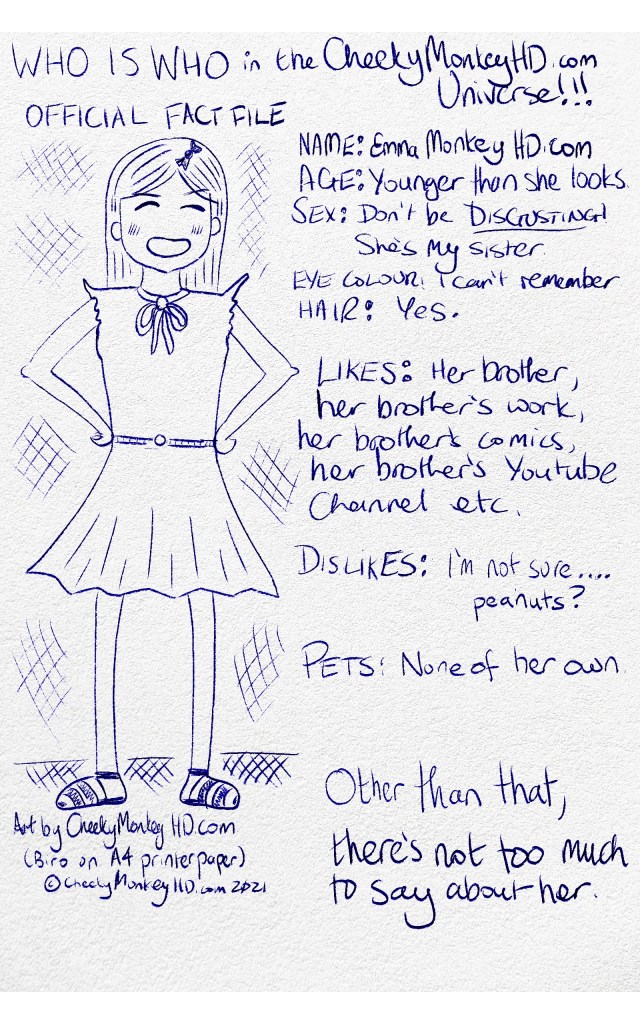 WHO IS WHO in the CheekyMonkeyHD.com
Universe!!!
OFFICIAL FACT FILE
NAME: Emma Monkey HD.com
AGE: Younger than she looks.
SEX: Don't be DISGUSTING!
She's my sister.
EYE COLOUR: I can't remember
HAIR: Yes.
LIKES: Her brother,
her brother's work,
her brother's comics,
her brother's Youtube
Channel etc.
DISLIKES: I'm not sure....
peanuts?
PETS: None of her own.
Other than that,
there's not too much
to say about her.
Art by CheekyMonkeyHD.com
(Biro on A4 printer paper)
© CheekyMonkeyHD.com 2021